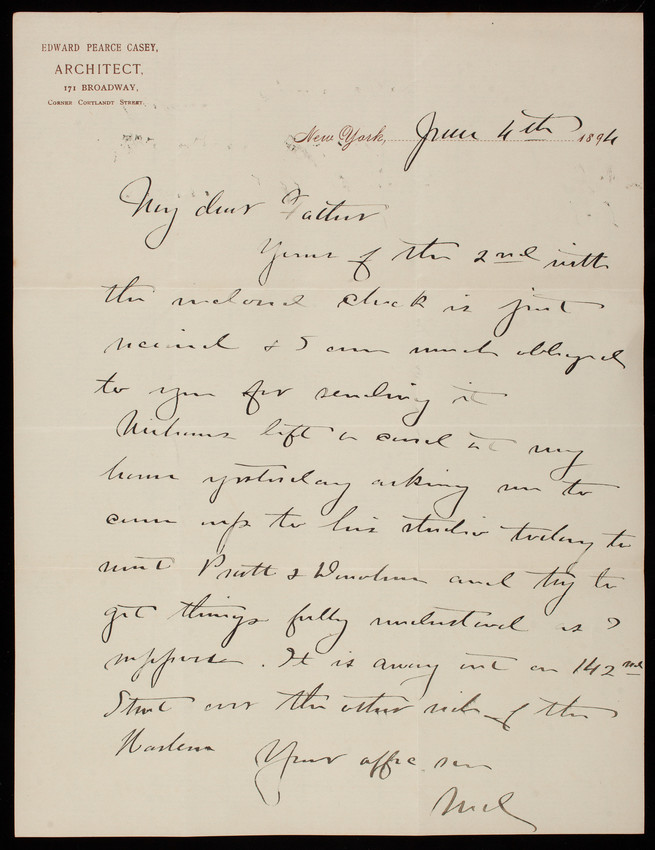 EDWARD PEARCE CASEY,
ARCHITECT,
171 BROADWAY,
CORNER CORTLANDT STREET.
New York, June 4th 1894
My dear Father
Yours of the 2nd with
the inclosed check is just
received & I am much obliged
to you for sending it
left a card at my
house yesterday asking me to
come up to his studio today to
meet Pratt & Donohue and try to
get things fully understood as I
suppose. It is away out on 142nd
Street over the other side of the
Harlem
Your affec. son
Ned